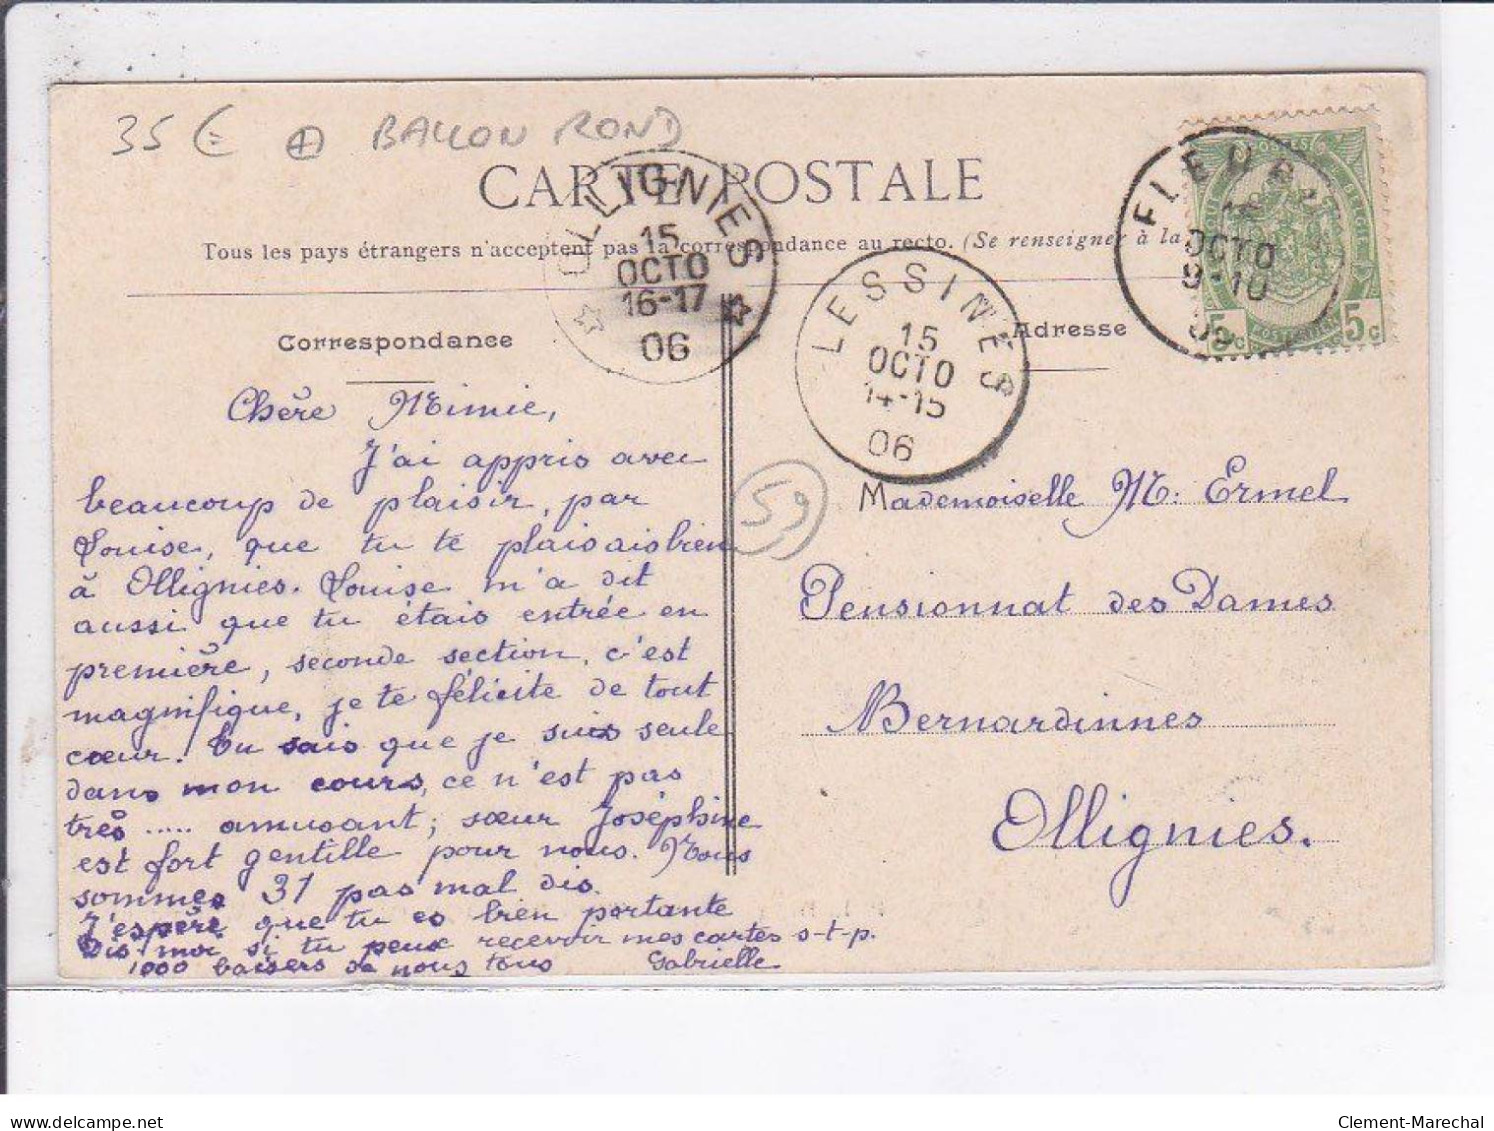 35 € BALLON ROND
CARTE POSTALE
Tous les pays étrangers n'acceptent pas la correspondance au recto. (Se renseigner à la
OLLIGNIES
15
OCTO
16-17
06
LESSINES
15
OCTO
14-15
06
OCTO
9-10
5c 5c
Correspondance
Adresse
59
Chère Mimie,
J'ai appris avec
beaucoup de plaisir, par
Louise, que tu te plaisais bien
à Ollignies. Louise m'a dit
aussi que tu étais entrée en
première, seconde section, c'est
magnifique, je te félicite de tout
cœur. Tu sais que je suis seule
dans mon cours, ce n'est pas
très ..... amusant; sœur Joséphine
est fort gentille pour nous. Nous
sommes 31 pas mal dis.
J'espère que tu es bien portante
Dis-moi si tu peux recevoir mes cartes s-t-p.
1000 baisers de nous tous Gabrielle
Mademoiselle M. Ermel
Pensionnat des Dames
Bernardinnes
Ollignies.
Clement-Marechal